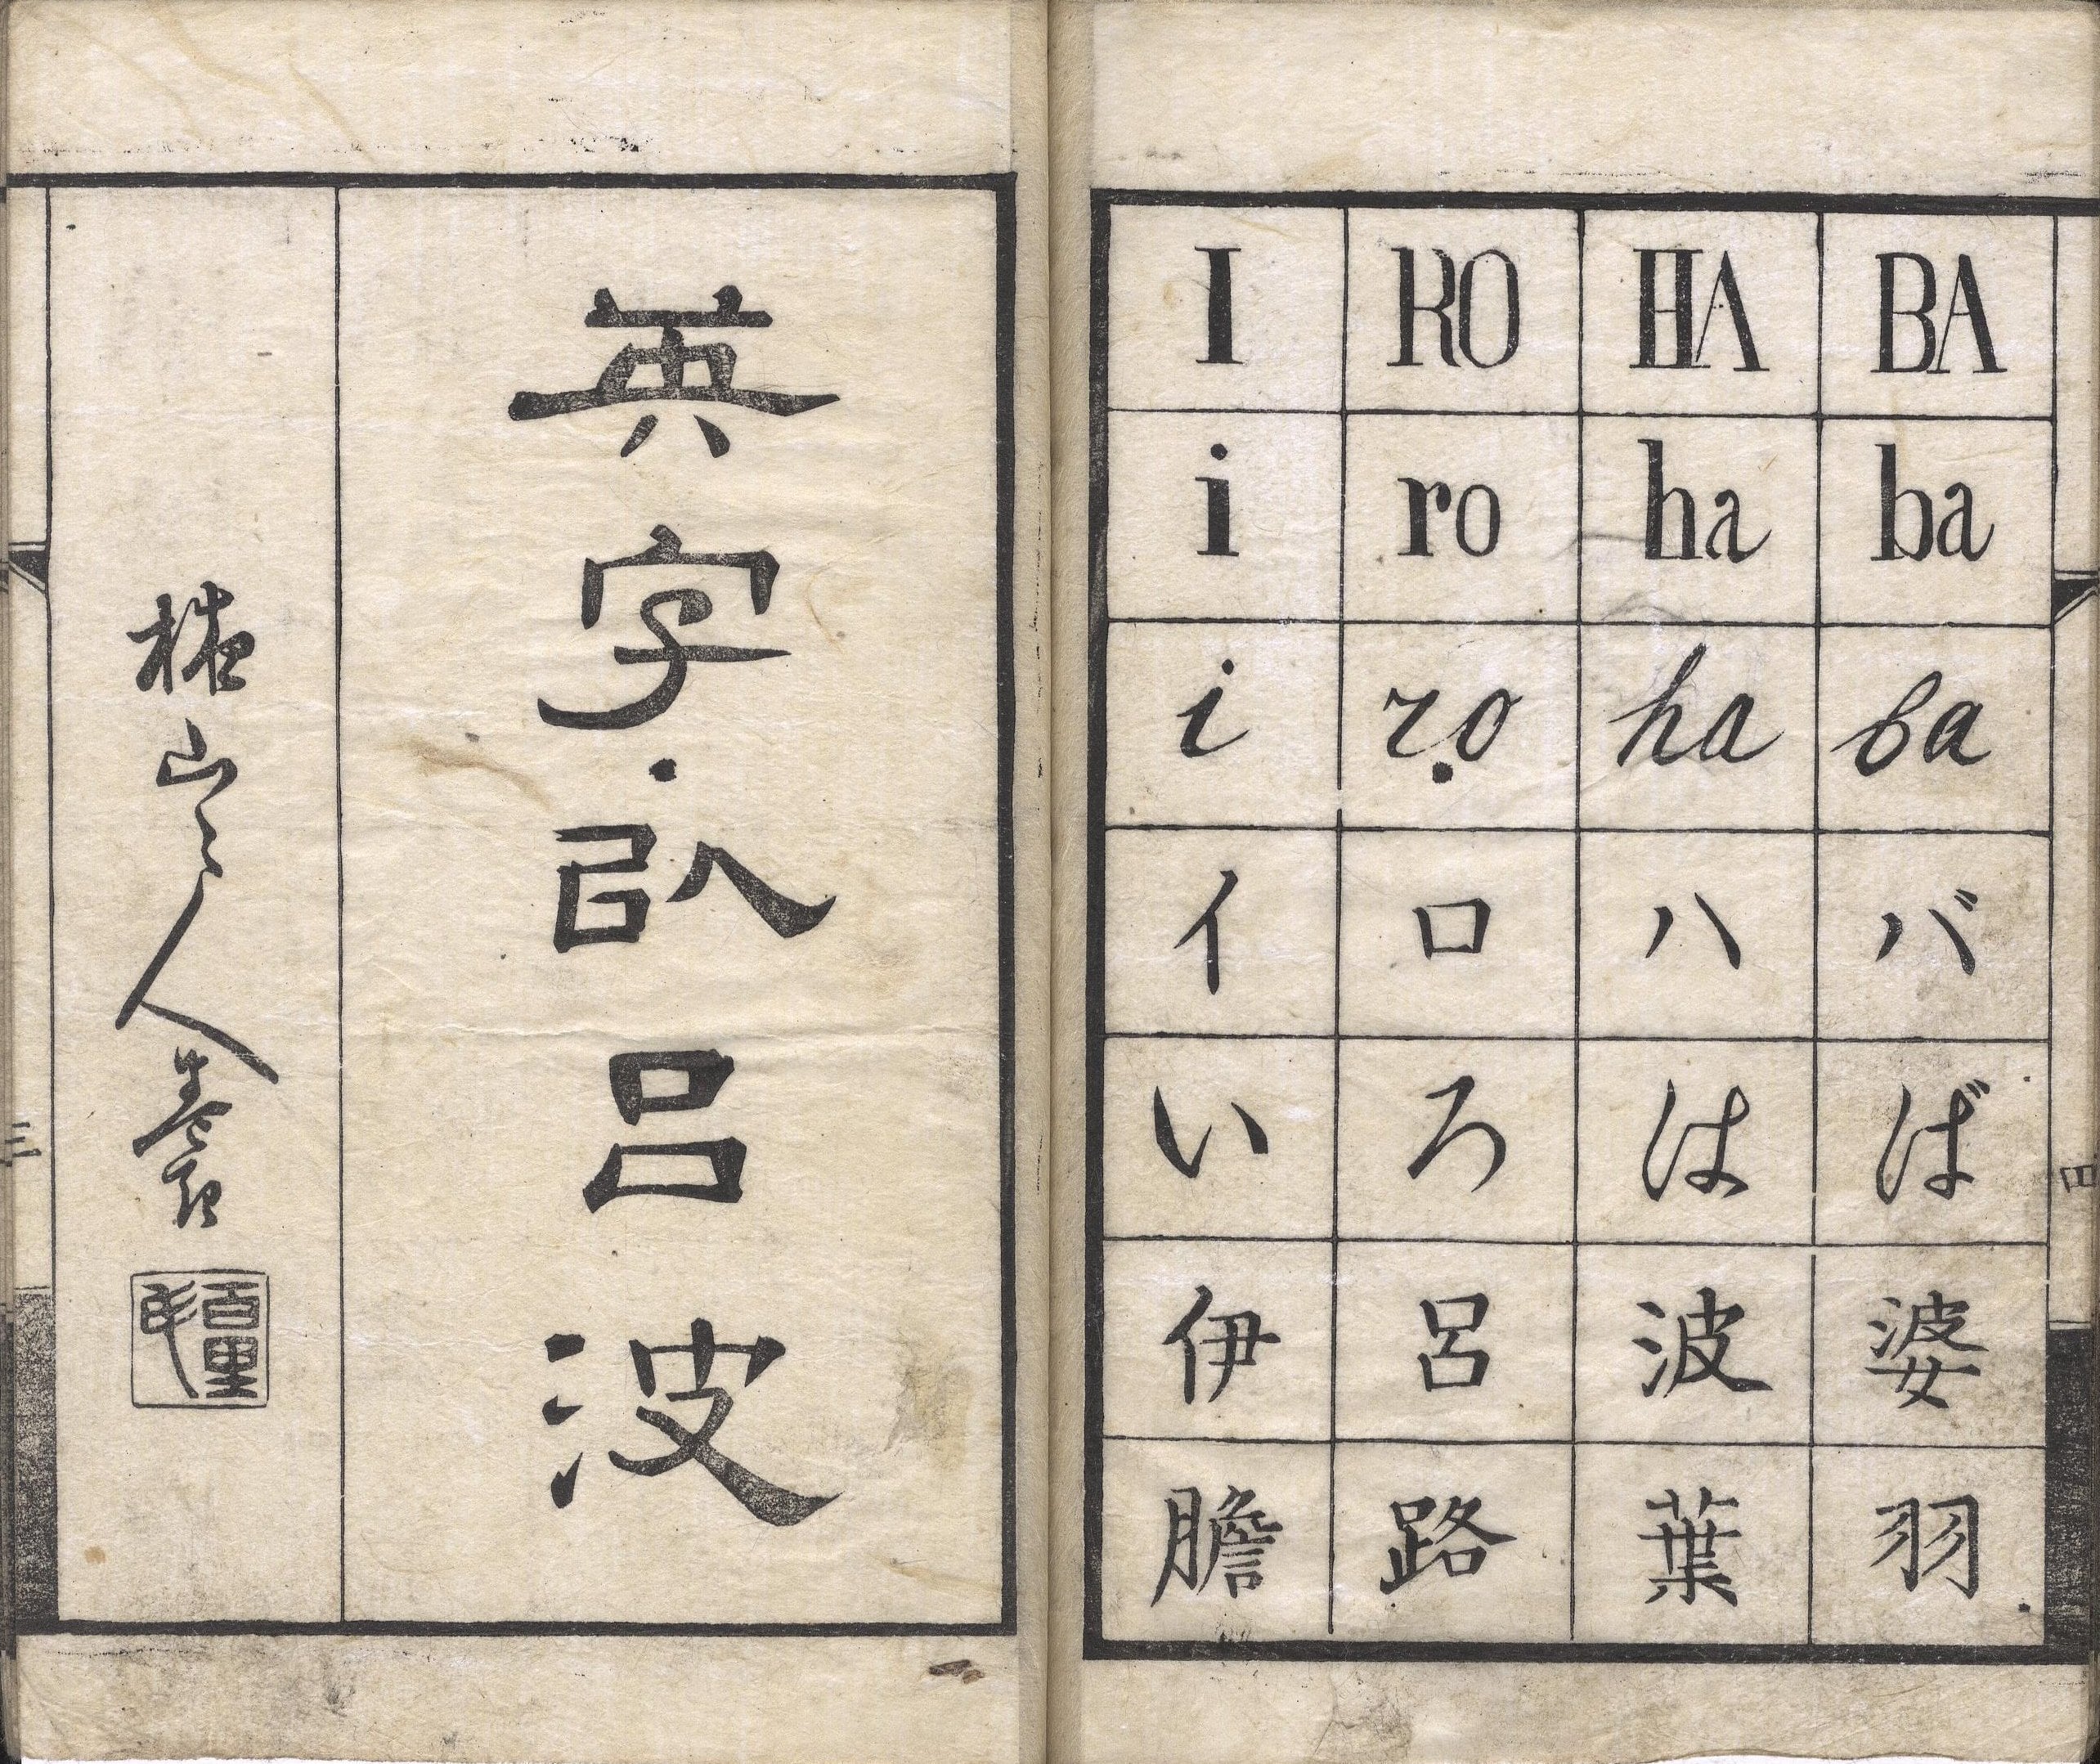 英字以呂波
山々人
I RO HA BA
i ro ha ba
i ro ha ba
イ ロ ハ バ
い ろ は ば
伊 呂 波 婆
膽 路 葉 羽